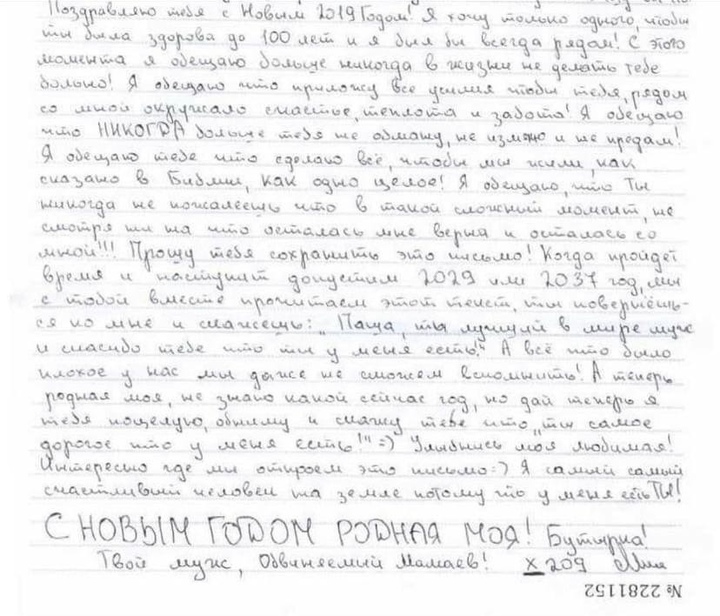 Поздравляю тебя с Новым 2019 Годом! Я хочу только одного, чтобы
ты была здорова до 100 лет и я был бы всегда рядом! С этого
момента я обещаю больше никогда в жизни не делать тебе
больно! Я обещаю что приложу все усилия чтобы тебя, рядом
со мной окружало счастье, теплота и забота! Я обещаю
что НИКОГДА больше тебя не обману, не изменю и не предам!
Я обещаю тебе что сделаю всё, чтобы мы жили, как
сказано в Библии, как одно целое! Я обещаю, что Ты
никогда не пожалеешь что в такой сложный момент, не
смотря ни на что осталась мне верна и осталась со
мной!!! Прошу тебя сохранить это письмо! Когда пройдет
время и наступит допустим 2029 или 2037 год, мы
с тобой вместе прочитаем этот текст, ты повернёшь-
ся ко мне и скажешь: "Паша, ты лучший в мире муж
и спасибо тебе что ты у меня есть!" А всё что было
плохое у нас мы даже не сможем вспомнить! А теперь
родная моя, не знаю какой сейчас год, но дай теперь я
тебя поцелую, обниму и скажу тебе что "ты самое
дорогое что у меня есть!" =) Улыбнись моя любимая!
Интересно где мы откроем это письмо =) Я самый самый
счастливый человек на земле потому что у меня есть ТЫ!
С НОВЫМ ГОДОМ РОДНАЯ МОЯ! Бутырка!
Твой муж, Обвиняемый Мамаев! х 209
№ 2281152